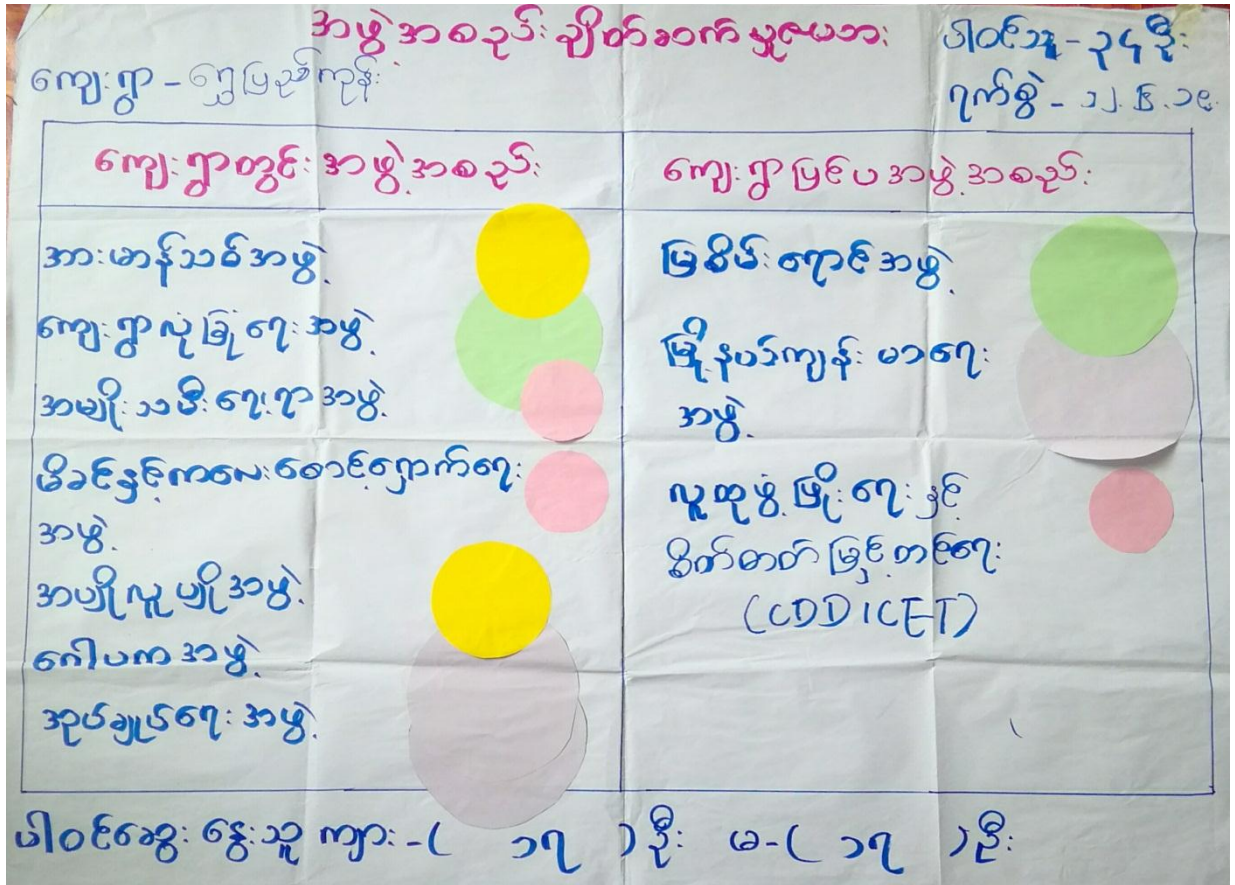 အဖွဲ့အစည်းချိတ်ဆက်မှုဇယား
ပါဝင်သူ - ၃၄ဦး
ကျေးရွာ - ရွှေပြည်ကုန်း
ရက်စွဲ - ၁၂.၆.၁၉
ကျေးရွာတွင်းအဖွဲ့အစည်း
ကျေးရွာပြင်ပအဖွဲ့အစည်း
အားမာန်သစ်အဖွဲ့
ကျေးရွာလုံခြုံရေးအဖွဲ့
အမျိုးသမီးရေးရာအဖွဲ့
မိခင်နှင့်ကလေးစောင့်ရှောက်ရေး
အဖွဲ့
အပျိုလူပျိုအဖွဲ့
ဂေါပကအဖွဲ့
အုပ်ချုပ်ရေးအဖွဲ့
မြစိမ်းရောင်အဖွဲ့
မြို့နယ်ကျန်းမာရေး
အဖွဲ့
လူထုဖွံ့ဖြိုးရေးနှင့်
စိတ်ဓာတ်မြှင့်တင်ရေး
(CDDICET)
ပါဝင်ဆွေးနွေးသူ ကျား - ( ၁၇ ) ဦး မ - ( ၁၇ ) ဦး